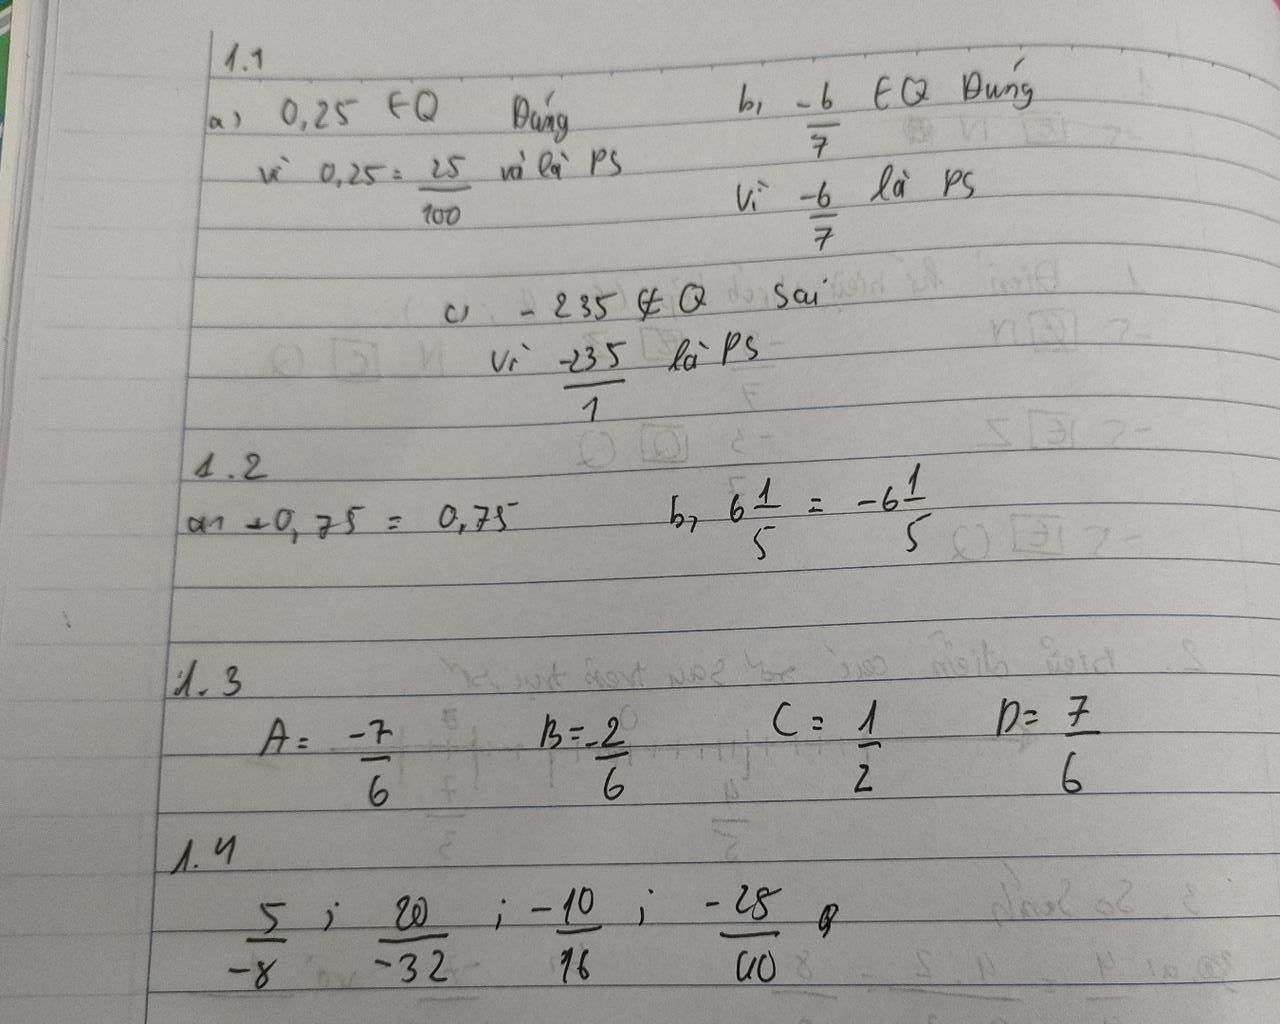 1.1
a, 0,25 ∈ Q Đúng b, -6/7 ∈ Q Đúng
vì 0,25 = 25/100 và là PS Vì -6/7 là PS
c, -235 ∉ Q Sai
Vì -235/1 là PS
1.2
a, -0,75 = 0,75 b, 6 1/5 = -6 1/5
1.3
A = -7/6 B = -2/6 C = 1/2 D = 7/6
1.4
5/-8 ; 20/-32 ; -10/16 ; -25/40